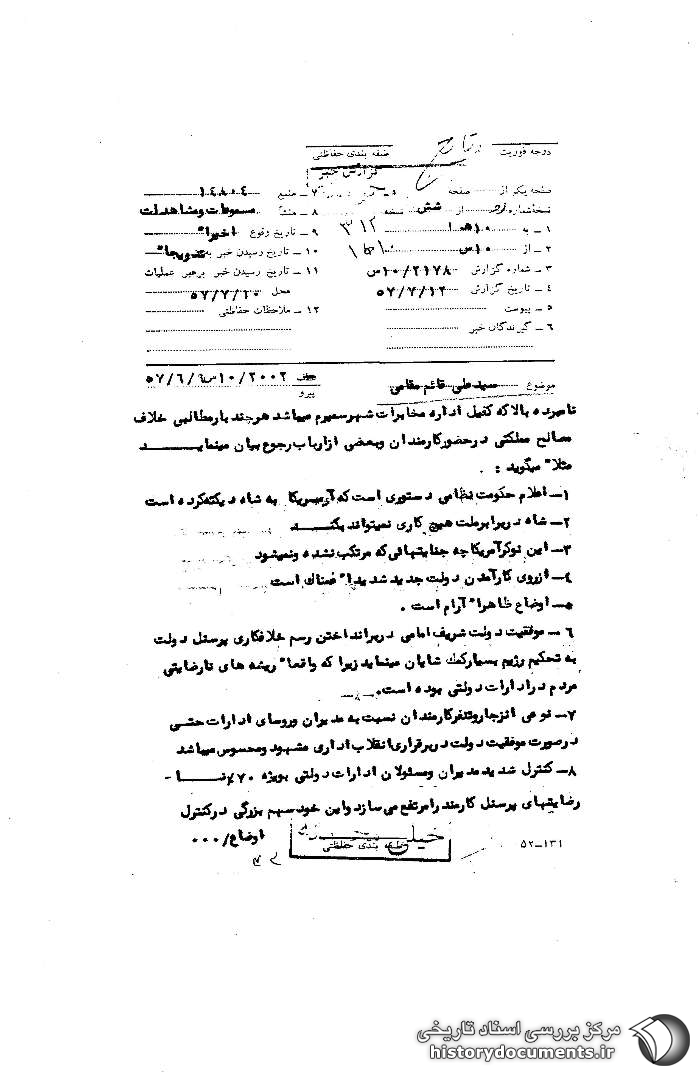 درجه فوریت
طبقه بندی حفاظتی
گزارش خبر
صفحه یک از صفحه
۷ ـ منبع ۱۴۸۰۴
نسخه شماره از شش نسخه
۸ ـ منشاء مسموعات و مشاهدات
۱ ـ به ۳۱۲
۹ ـ تاریخ وقوع اخیرا"
۲ ـ از ۱۰س
۱۰ ـ تاریخ رسیدن خبر به
۳ ـ شماره گزارش ۱۰/۲۱۷۸س
۱۱ ـ تاریخ رسیدن خبر برهبر عملیات
۴ ـ تاریخ گزارش ۵۷/۷/۱۲
محل ۵۷/۷/۱۰
۵ ـ پیوست
۱۲ ـ ملاحظات حفاظتی
۶ ـ گیرندگان خبر
موضوع سیدعلی قائم مقامی
پیرو ۵۷/۶/۶
نامبرده بالا که کفیل اداره مخابرات شهر سمیرم میباشد هرچند بار مطالبی خلاف
مصالح مملکتی در حضور کارمندان و بعضی از ارباب رجوع بیان مینماید
مثلا" میگوید :
۱ـ اعلام حکومت نظامی دستوری است که آمریکا به شاه دیکته کرده است
۲ـ شاه در برابر ملت هیچ کاری نمیتواند بکند
۳ـ این نوکر آمریکا چه جنایتهائی که مرتکب نشده و نمیشود
۴ـ از روی کار آمدن دولت جدید شدیدا" غمناک است
۵ـ اوضاع ظاهرا" آرام است .
۶ـ موفقیت دولت شریف امامی در برانداختن رسم خلافکاری پرسنل دولت
به تحکیم رژیم بسیار کمک شایان مینماید زیرا که واقعا" ریشه های نارضایتی
مردم در ادارات دولتی بوده است.
۷ـ نوعی انزجار و تنفر کارمندان نسبت به مدیران و روسای ادارات حتی
در صورت موفقیت دولت در برقراری انقلاب اداری مشهود و محسوس میباشد
۸ـ کنترل شدید مدیران و مسئولان ادارات دولتی بویژه ۷۰٪ نا ـ
رضایتیهای پرسنل کارمند را مرتفع می سازد و این خود سهم بزرگی در کنترل
اوضاع/ ۰۰۰
خیلی
طبقه بندی حفاظتی
۵۲ـ۱۳۱
مرکز بررسی اسناد تاریخی
historydocuments.ir